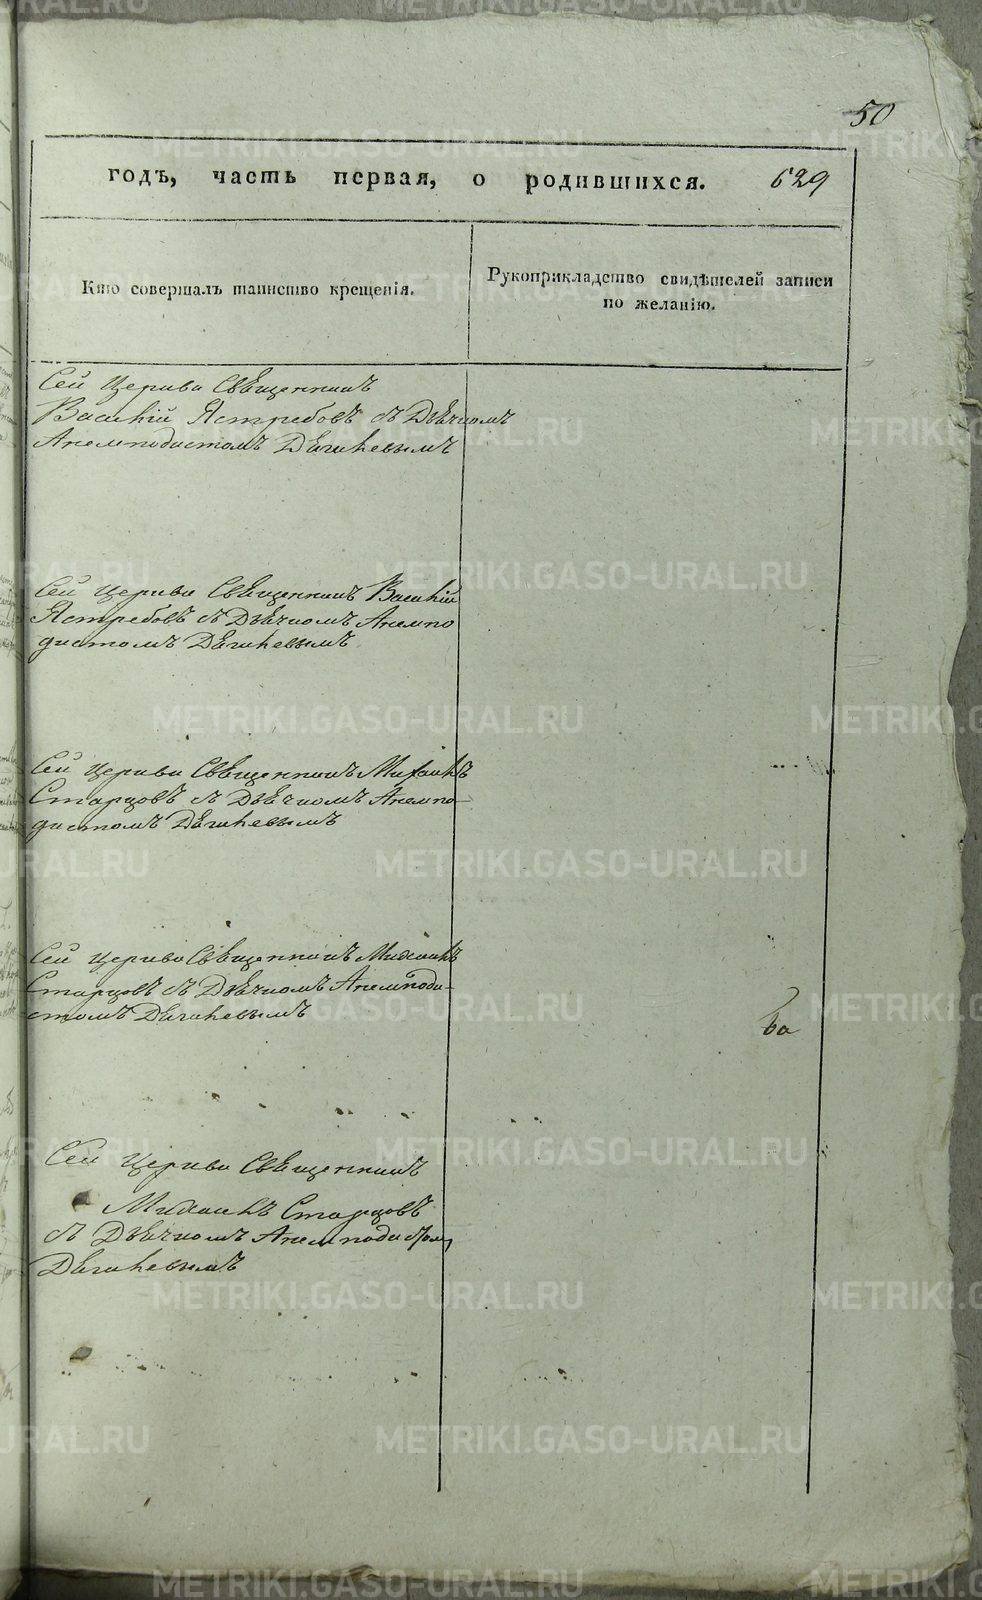 50
годъ, часть первая, о родившихся. 629
Кто совершалъ таинство крещенія.
Рукоприкладство свидѣтелей записи
по желанію.
Сей Церкви Священникъ
Василій Ястребовъ съ Дьячкомъ
Анемподистомъ Дягилевымъ
Сей Церкви Священникъ Василій
Ястребовъ съ Дьячкомъ Анемпо
дистомъ Дягилевымъ
Сей Церкви Священникъ Михаилъ
Старцовъ съ Дьячкомъ Анемпо-
дистомъ Дягилевымъ
Сей Церкви Священникъ Михаилъ
Старцовъ съ Дьячкомъ Анемподи-
стомъ Дягилевымъ
Сей Церкви Священникъ
Михаилъ Старцовъ
съ Дьячкомъ Анемподистомъ
Дягилевымъ
METRIKI.GASO-URAL.RU